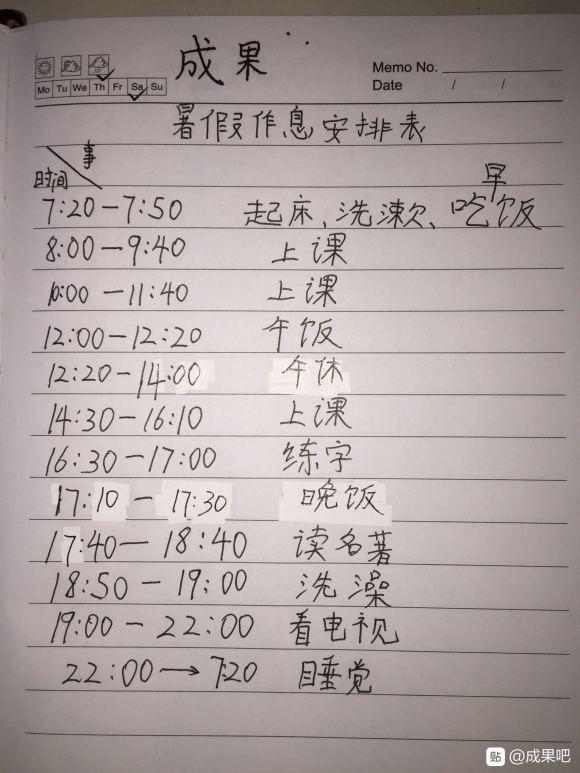 成果
Memo No.
Mo Tu We Th Fr Sa Su
Date / /
暑假作息安排表
事
时间
早
7:20—7:50 起床、洗漱、吃饭
8:00—9:40 上课
10:00—11:40 上课
12:00—12:20 午饭
12:20—14:00 午休
14:30—16:10 上课
16:30—17:00 练字
17:10—17:30 晚饭
17:40—18:40 读名著
18:50—19:00 洗澡
19:00—22:00 看电视
22:00→7:20 睡觉
贴 @成果吧